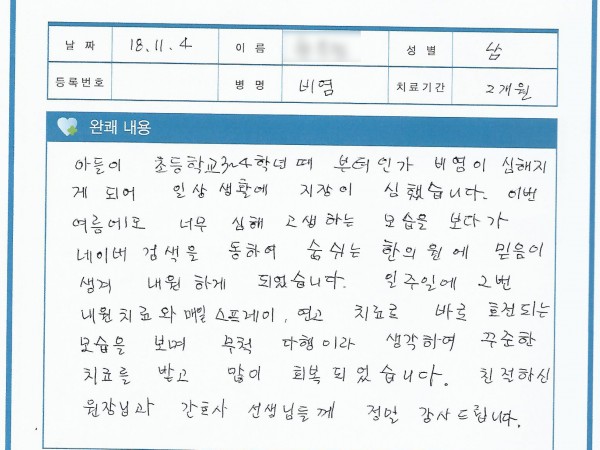 날 짜 18.11.4 이 름 성 별 남
등록번호 병 명 비염 치료기간 2개월
완쾌 내용
아들이 초등학교3~4학년 때 부터인가 비염이 심해지
게 되어 일상 생활에 지장이 심했습니다. 이번
여름에도 너무 심해 고생하는 모습을 보다가
네이버 검색을 통하여 숨쉬는 한의원에 믿음이
생겨 내원하게 되었습니다. 일주일에 2번
내원치료와 매일 스프레이, 연고 치료로 바로 호전되는
모습을 보며 무척 다행이라 생각하여 꾸준한
치료를 받고 많이 회복되었습니다. 친절하신
원장님과 간호사 선생님들께 정말 감사드립니다.